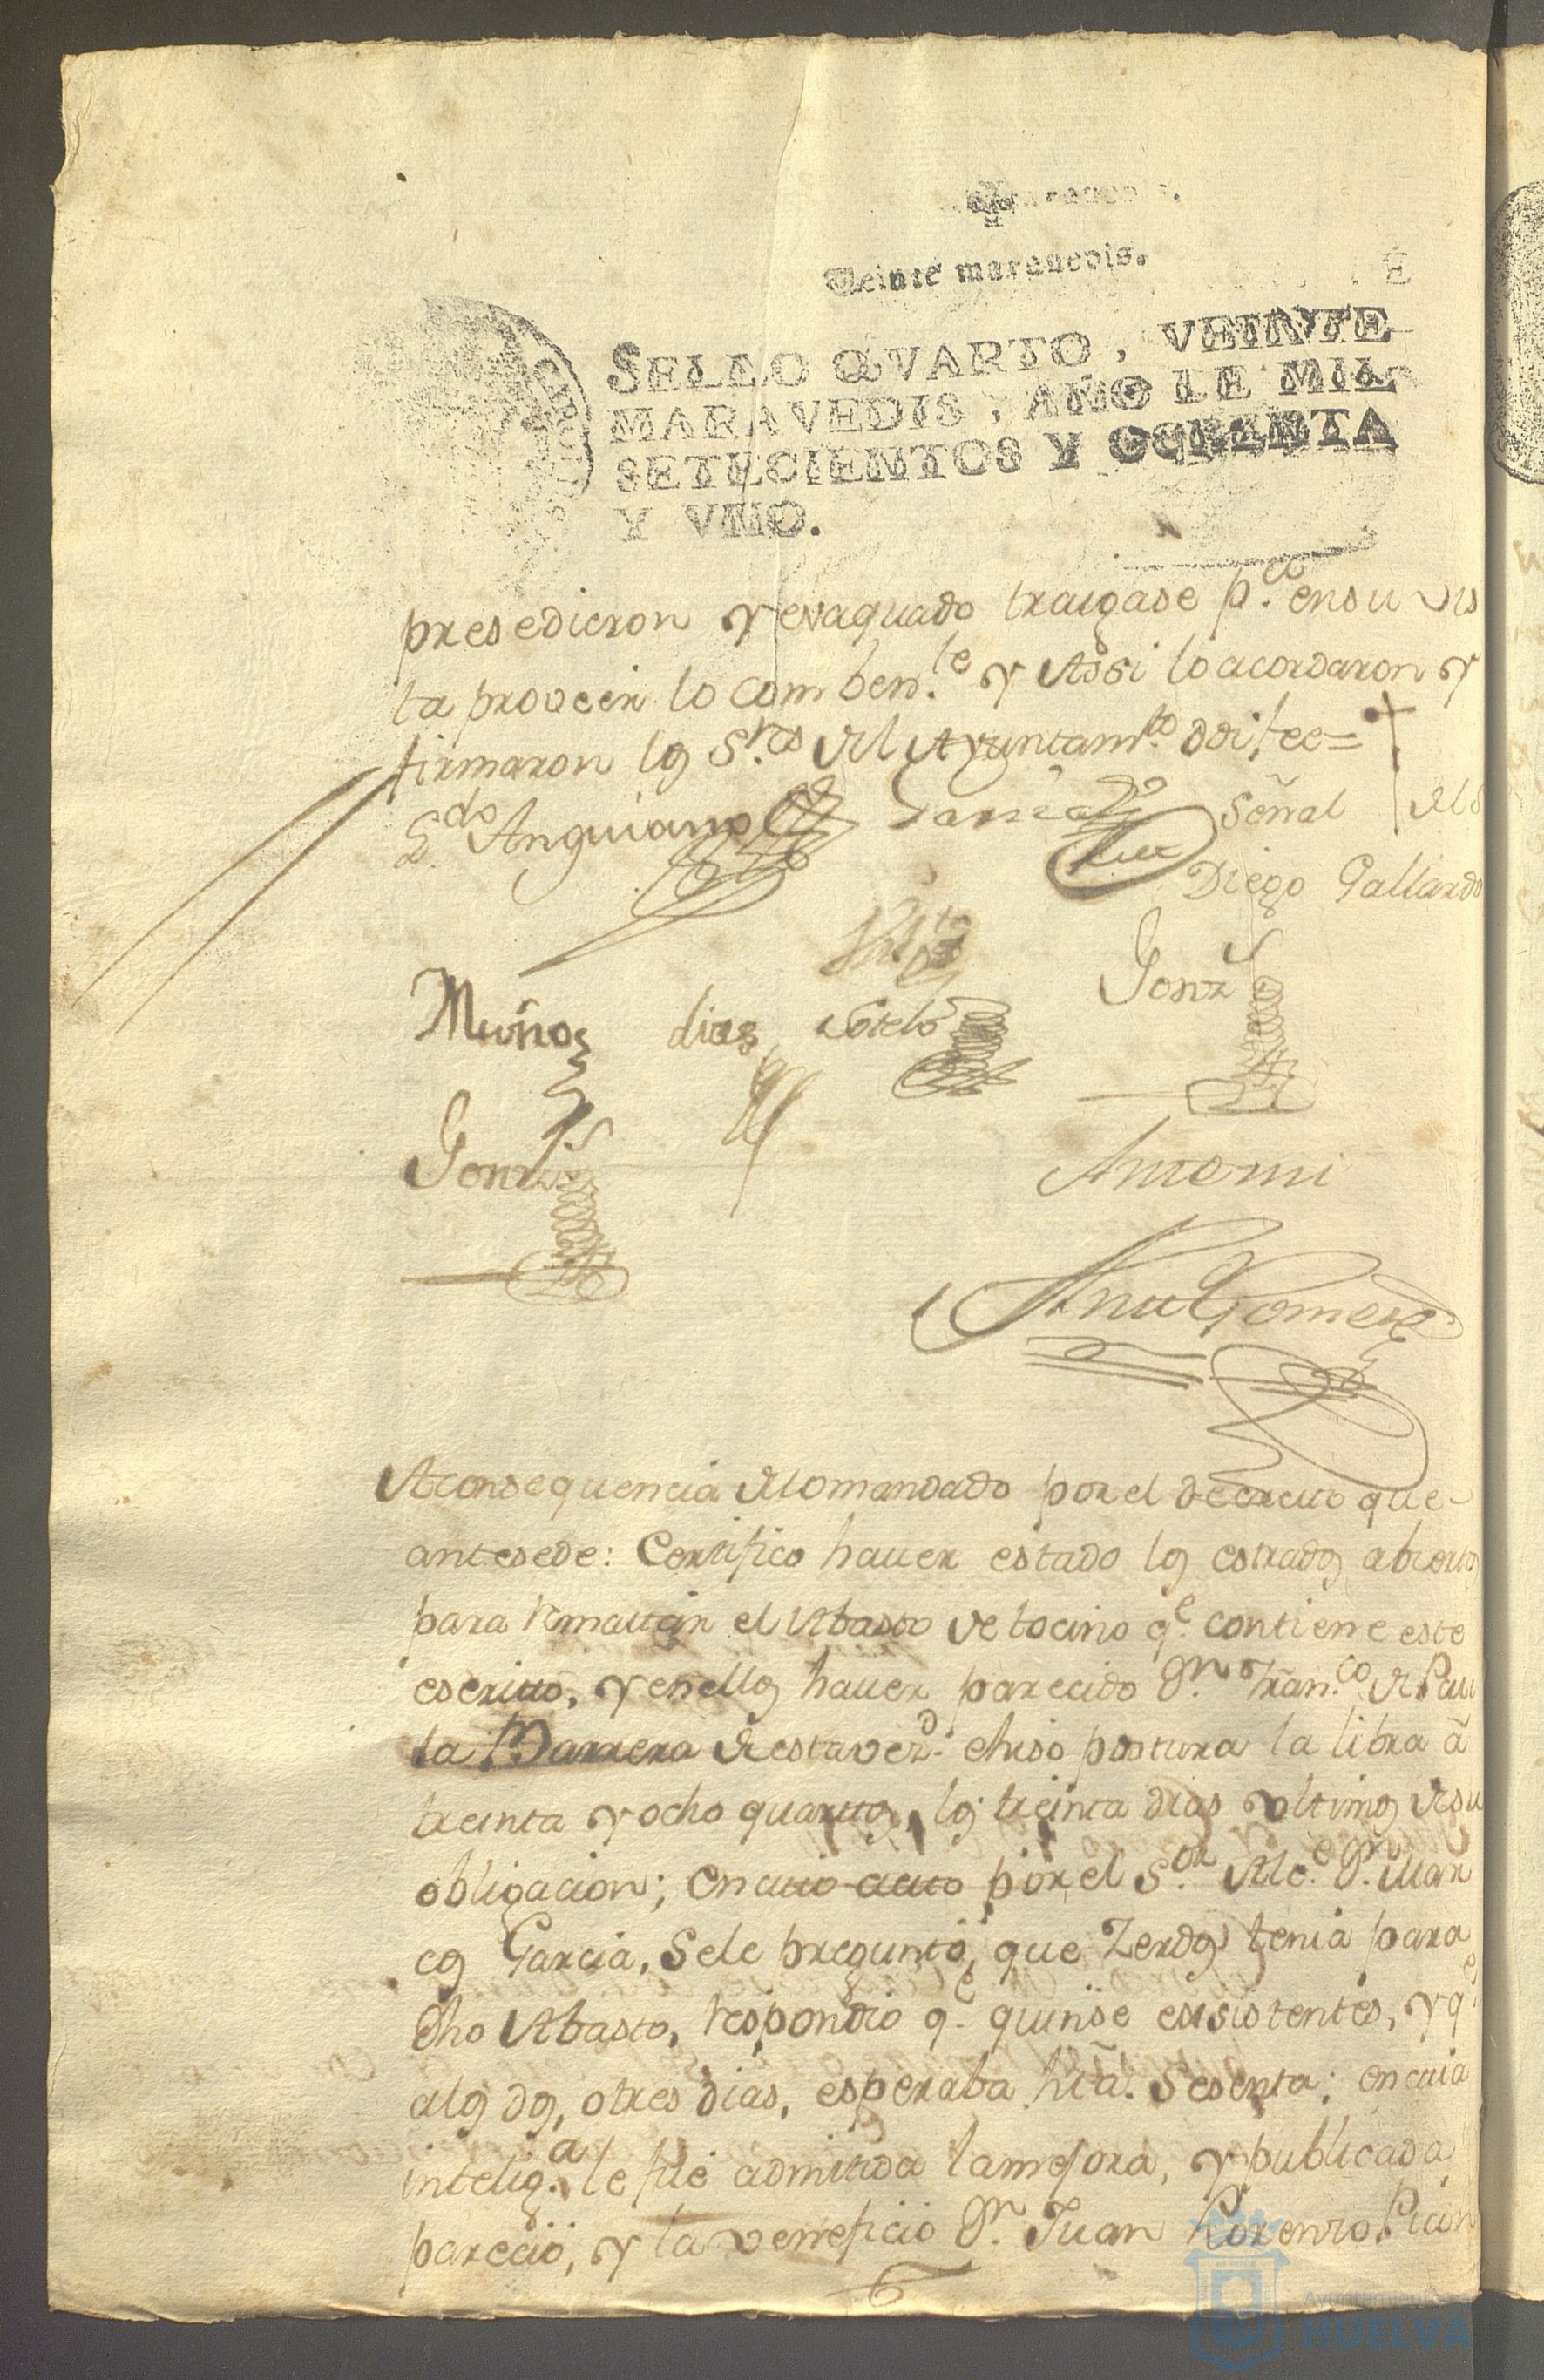 Veinte maravedis.
SELLO QVARTO, VEINTE
MARAVEDIS, AÑO DE MIL
SETECIENTOS Y OCHENTA
Y VNO.
presedieron y evaquado traigase p.ª ensu vis
ta proveer lo comben.te y Assi lo acordaron y
firmaron los S.res del Ayuntam.to doi fee=
L.do Anguiano Garcia Señal del S
Diego Gallardo
Muñoz dias Sotelo Gonz.s
Gonz.s
Antemi
Gomez
Aconsequencia delomandado por el decreto que
antesede: Certifico hauer estado los estrados abiertos
para rematar el Abasto de tocino q.e contiene este
escrito, y enellos hauer parecido D.n Fran.co de Pau
la Barrera de esta vez.d ehiso postura la libra â
treinta y ocho quartos, los treinta dias vltimos desu
obligacion; en cuio acto por el S.or Alc.e D.n Mar
cos Garcia, Sele preguntò, que Zerdos tenia para
dho Abasto, respondio q.e quinse esistentes, y q.e
alos dos, otres dias, esperaba hta. Sesenta; en cuia
intelig.a le fué admitida lamejora, y publicada
pareciò, y la veneficiò D.n Juan Lorenzo Picon
Ayuntamiento de
HUELVA